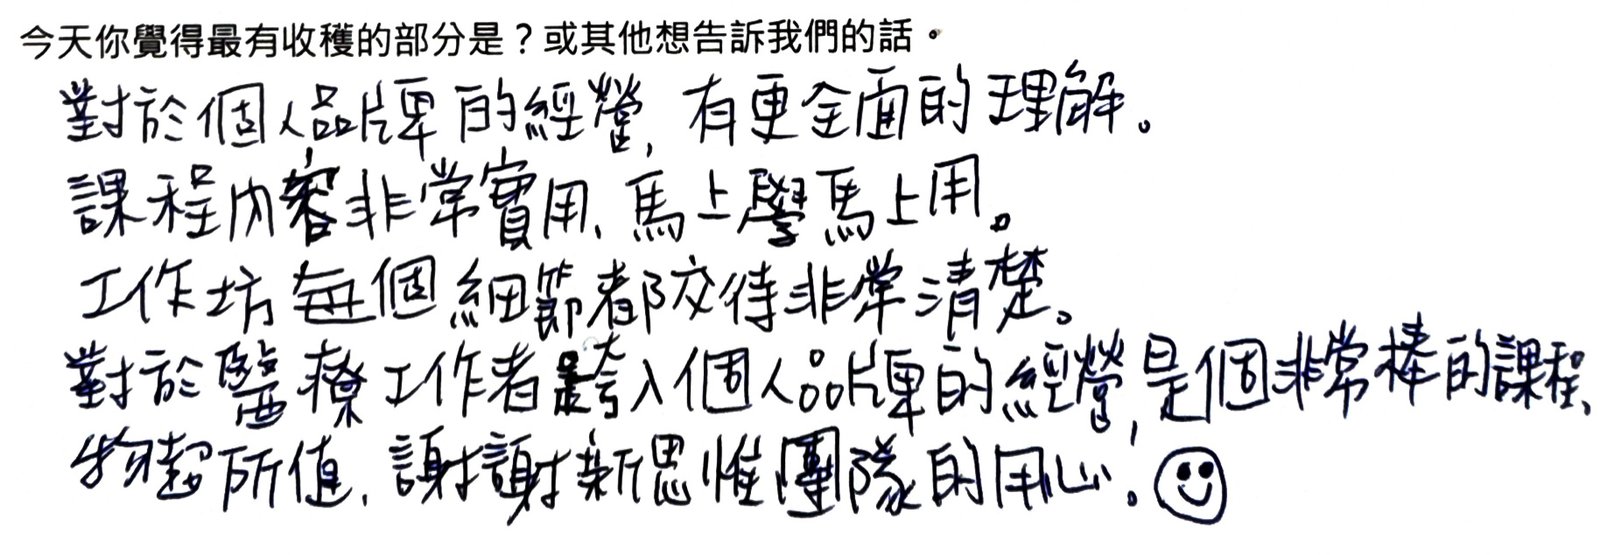 今天你覺得最有收穫的部分是？或其他想告訴我們的話。
對於個人品牌的經營, 有更全面的理解。
課程內容非常實用、馬上學馬上用。
工作坊每個細節都交待非常清楚。
對於醫療工作者跨入個人品牌的經營, 是個非常棒的課程、
物超所值. 謝謝新思惟團隊的用心。